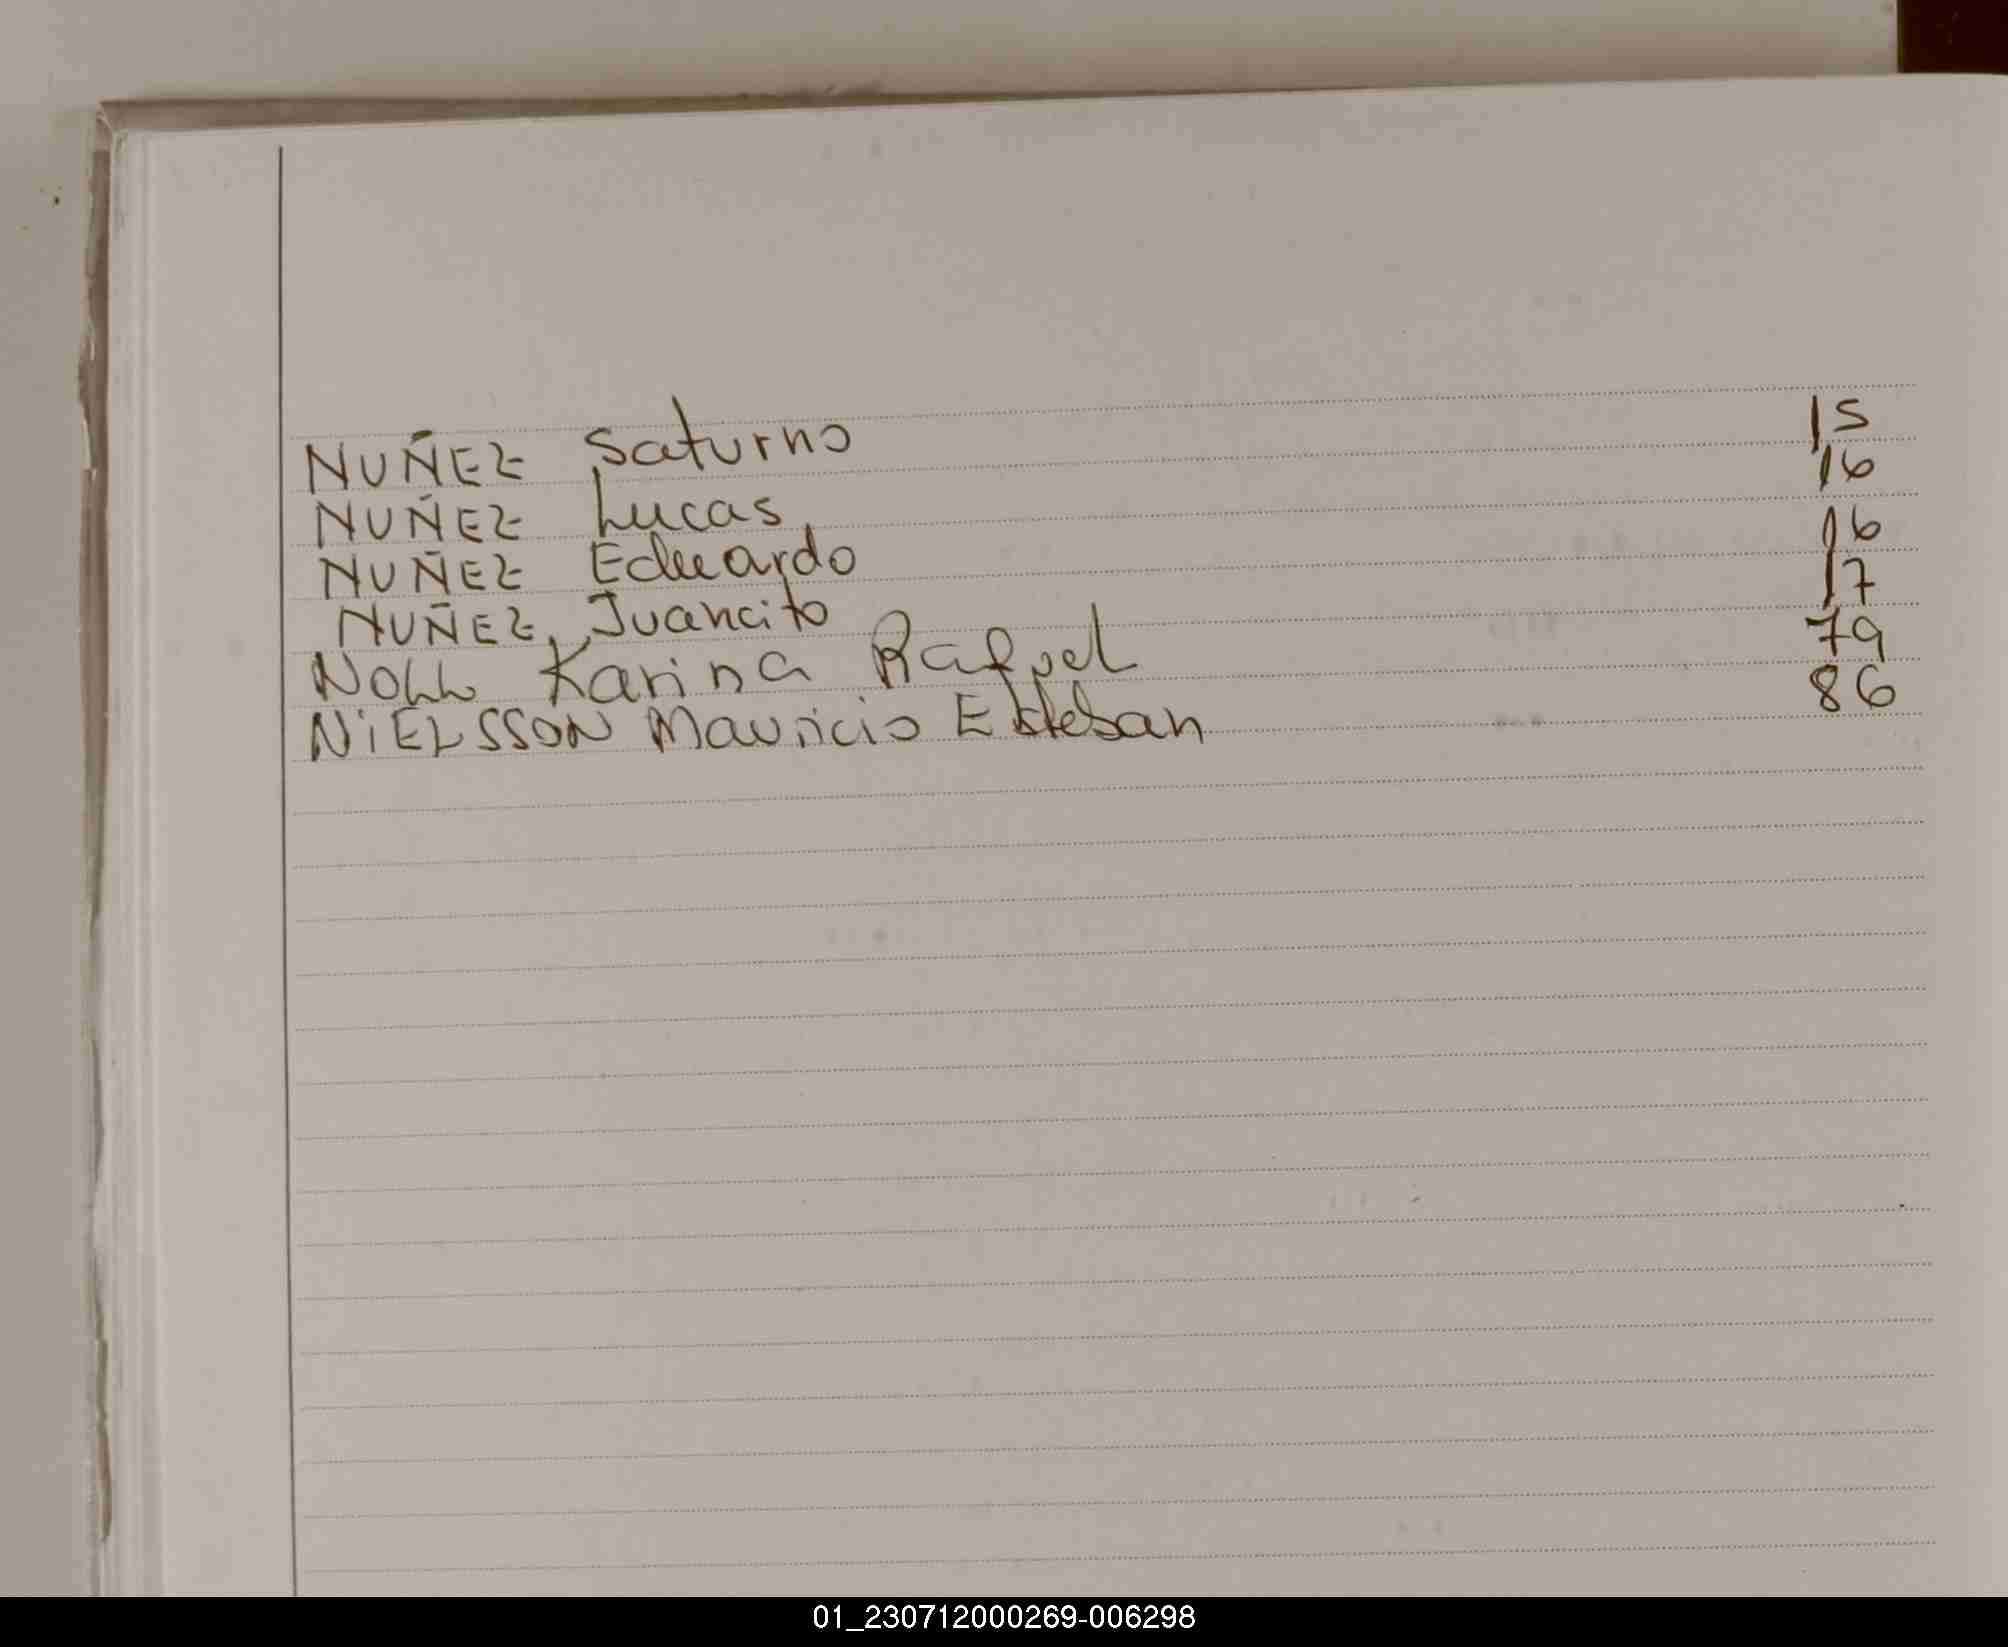 NUÑEZ Saturno 15
NUÑEZ Lucas 16
NUÑEZ Eduardo 16
NUÑEZ, Juancito 17
NOLL Karina Rafael 79
NiELSSON Mauricio Esteban 86
01_230712000269-006298